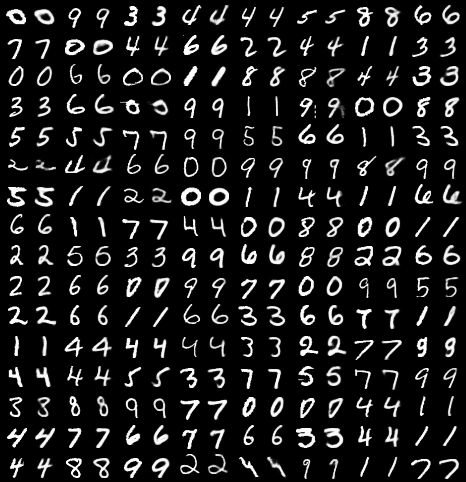 0 0 9 9 3 3 4 4 4 4 5 5 8 8 6 6
7 7 0 0 4 4 6 6 2 2 4 4 1 1 3 3
0 0 6 6 0 0 1 1 8 8 8 8 4 4 3 3
3 3 6 6 0 0 9 9 1 1 9 9 0 0 8 8
5 5 5 5 7 7 9 9 5 5 6 6 1 1 3 3
2 2 4 4 6 6 0 0 9 9 9 9 8 8 9 9
5 5 1 1 2 2 0 0 1 1 4 4 1 1 6 6
6 6 1 1 7 7 4 4 0 0 8 8 0 0 1 1
2 2 5 5 3 3 9 9 6 6 8 8 2 2 6 6
2 2 6 6 0 0 9 9 7 7 0 0 9 9 5 5
2 2 6 6 1 1 6 6 3 3 6 6 7 7 1 1
1 1 4 4 4 4 4 4 3 3 2 2 7 7 9 9
4 4 4 4 5 5 3 3 7 7 5 5 7 7 9 9
3 3 8 8 9 9 7 7 0 0 0 0 4 4 1 1
4 4 7 7 6 6 7 7 6 6 3 3 4 4 1 1
4 4 8 8 9 9 2 2 9 9 1 1 7 7